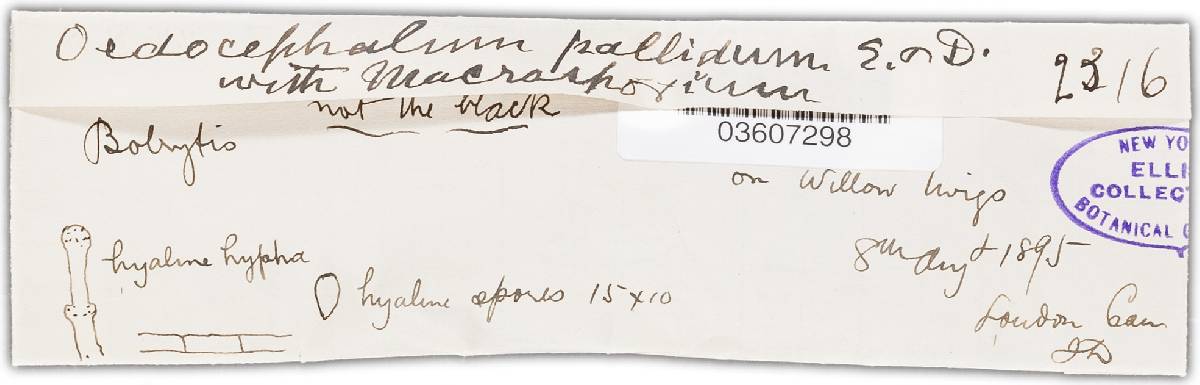 Oedocephalum pallidum. E. & D.
with Macrosporium
2316
not the black
Botrytis
03607298
NEW YO
ELLI
COLLEC
BOTANICAL G
on Willow twigs
8th Augt 1895
hyaline hypha
hyaline spores 15×10
London Can
JD